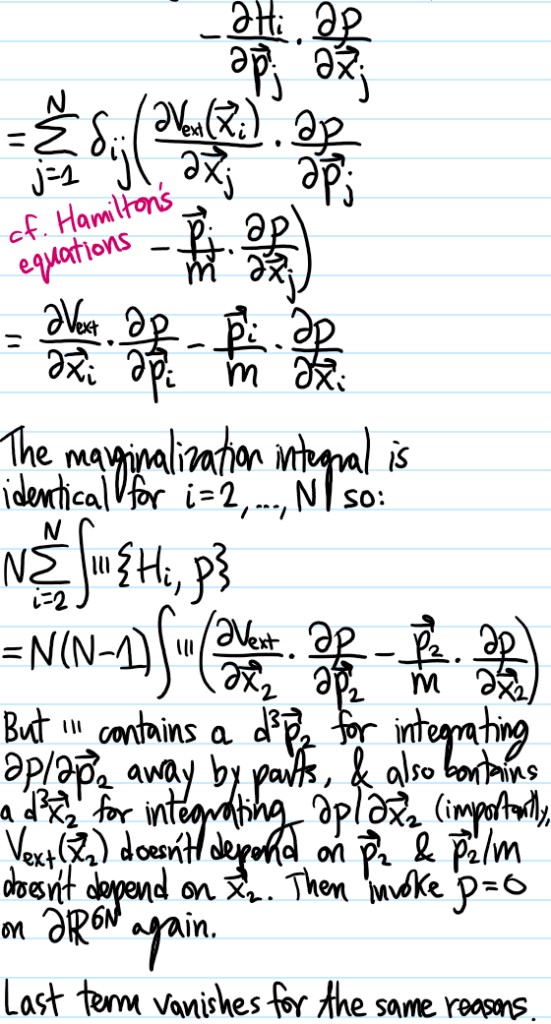 - ∂Hᵢ/∂p⃗ⱼ · ∂ρ/∂x⃗ⱼ
= Σ_{j=1}^{N} δᵢⱼ(∂V_ext(x⃗ᵢ)/∂x⃗ⱼ · ∂ρ/∂p⃗ⱼ
cf. Hamilton's
equations - p⃗ⱼ/m · ∂ρ/∂x⃗ⱼ)
= ∂V_ext/∂x⃗ᵢ · ∂ρ/∂p⃗ᵢ - p⃗ᵢ/m · ∂ρ/∂x⃗ᵢ
The marginalization integral is
identical for i=2, ..., N so:
N Σ_{i=2}^{N} ∫''' {Hᵢ, ρ}
= N(N-1) ∫''' (∂V_ext/∂x⃗₂ · ∂ρ/∂p⃗₂ - p⃗₂/m · ∂ρ/∂x⃗₂)
But ''' contains a d³p⃗₂ for integrating
∂ρ/∂p⃗₂ away by parts, & also contains
a d³x⃗₂ for integrating ∂ρ/∂x⃗₂ (importantly,
V_ext(x⃗₂) doesn't depend on p⃗₂ & p⃗₂/m
doesn't depend on x⃗₂. Then invoke ρ=0
on ∂ℝ⁶ᴺ again.
Last term vanishes for the same reasons.